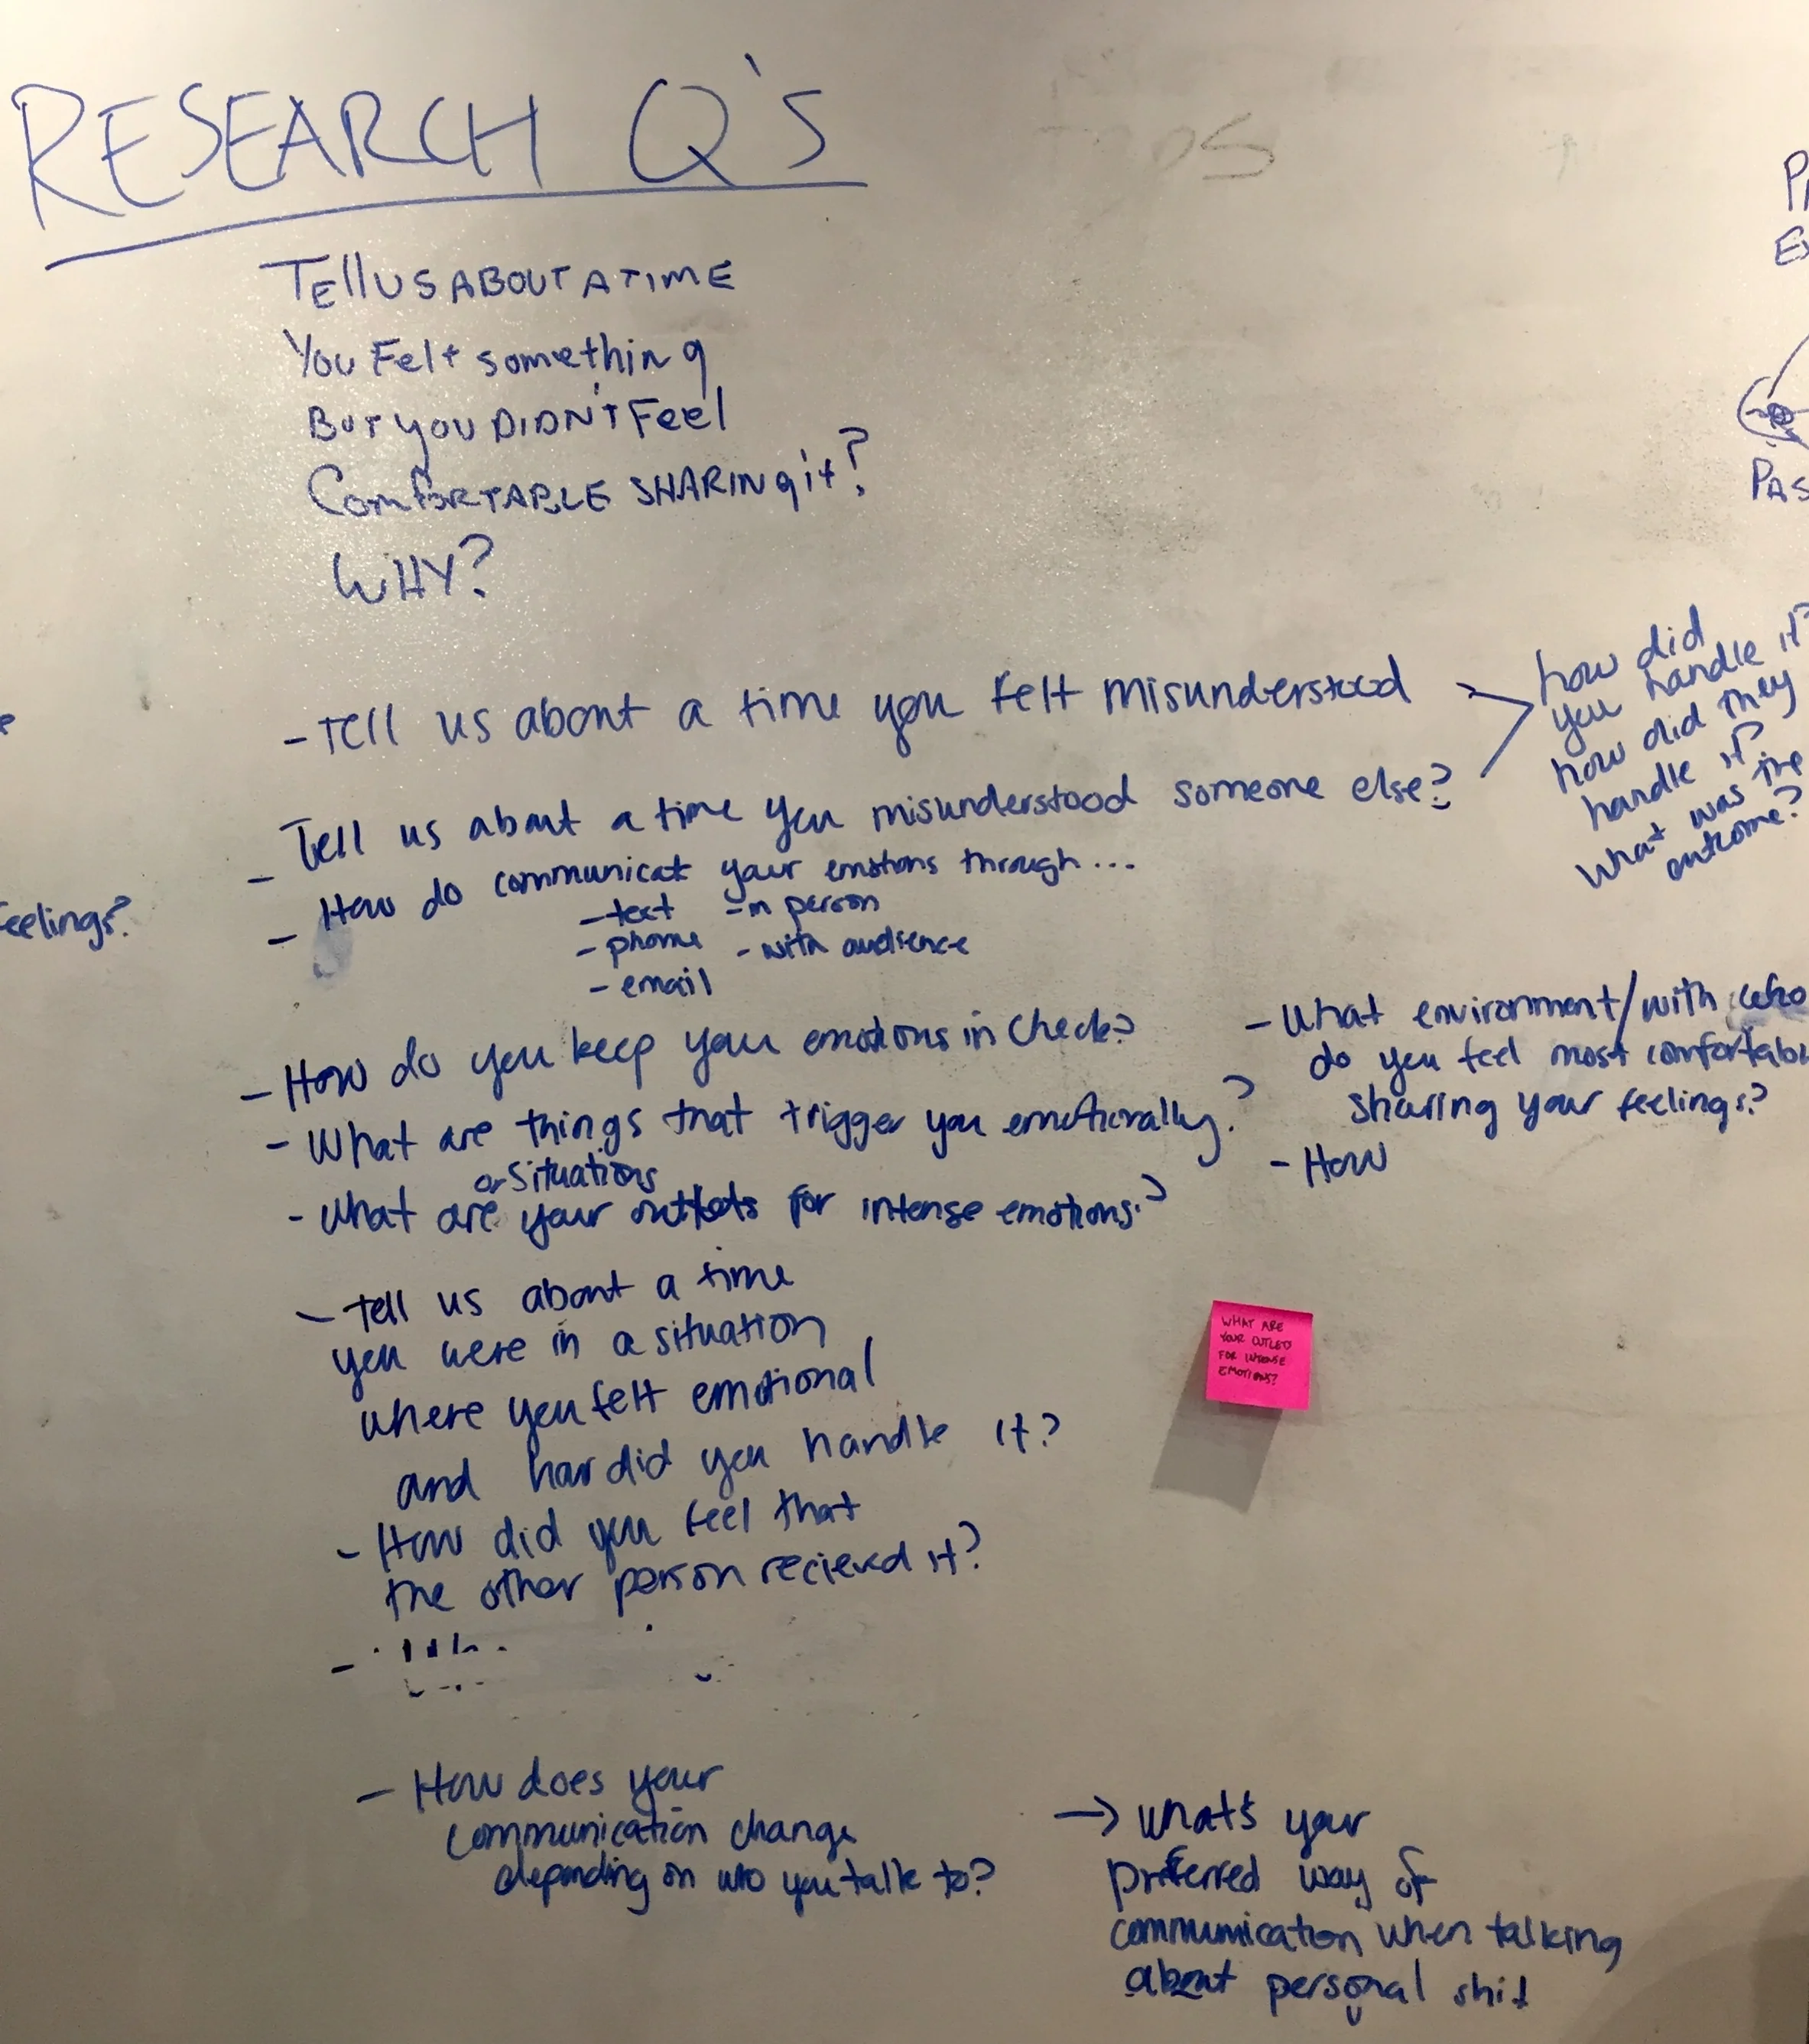 RESEARCH Q'S
TEllUS ABOUT A TIME
You Felt something
BUT you DIDN'T Feel
COMfORTABLE SHARINg it?
WHY?
- Tell us about a time you felt misunderstood
- Tell us about a time you misunderstood someone else?
how did
you handle it?
how did they
handle it?
what was the
outcome?
- How do communicat your emotions through...
- text - in person
- phone - with audience
- email
feelings?
- How do you keep your emotions in check?
- What are things that trigger you emotionally?
or situations
- What are your outlets for intense emotions?
- What environment/with who
do you feel most comfortabl
sharing your feelings?
- How
- Tell us about a time
you were in a situation
where you felt emotional
and how did you handle it?
- How did you feel that
the other person recieved it?
-
WHAT ARE
YOUR OUTLETS
FOR INTENSE
EMOTIONS?
- How does your
communication change
depending on who you talk to?
→ what's your
preferred way of
communication when talking
about personal shit
PAS